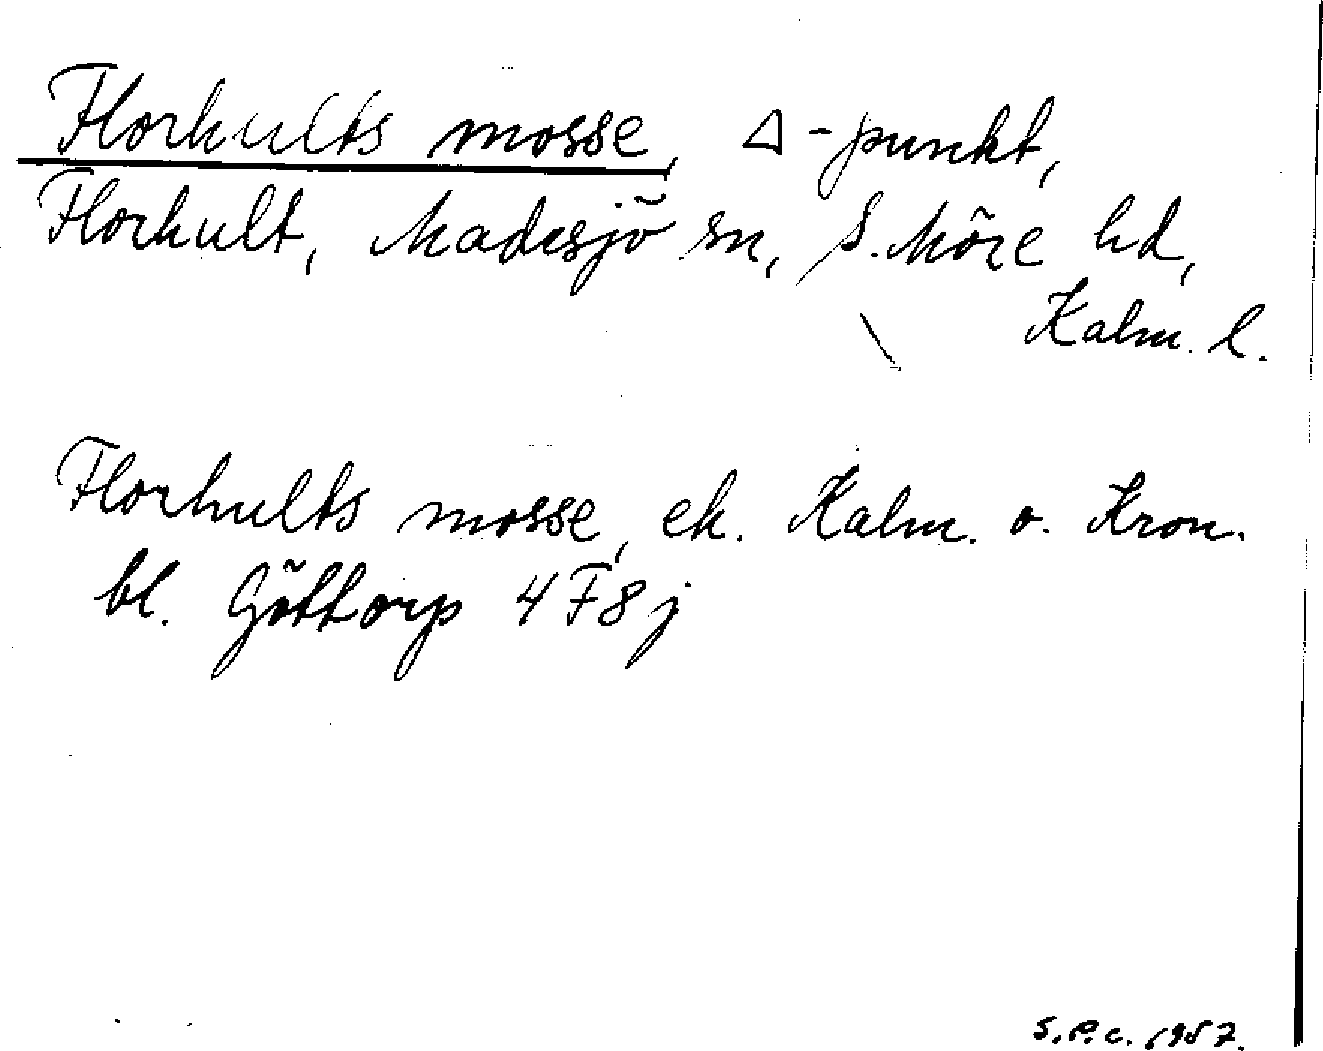 Florhults mosse, △-punkt,
Florhult, Madesjö sn, S. Möre hd,
Kalm. l.
Florhults mosse, ek. Kalm. o. Kron.
bl. Göttorp 4F8j
S.P.C. 1957.